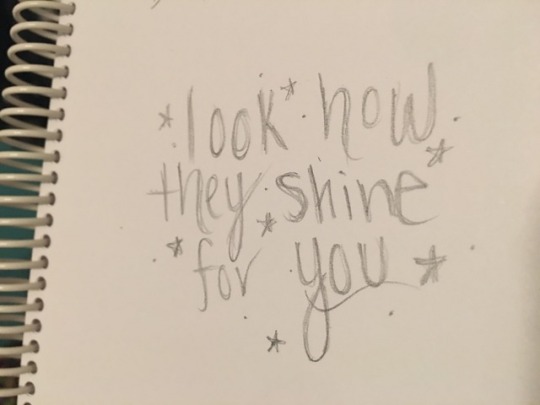 look how
they shine
for you